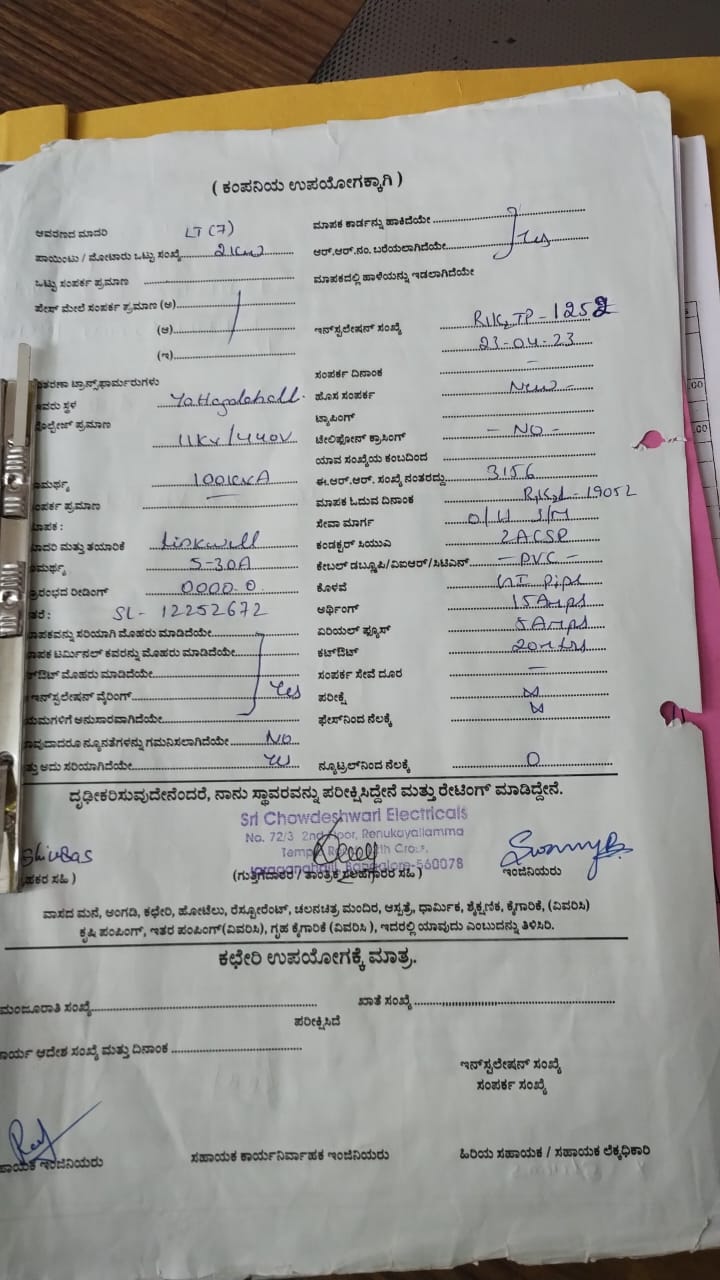 ( ಕಂಪನಿಯ ಉಪಯೋಗಕ್ಕಾಗಿ )
ಆವರಣದ ಮಾದರಿ LT (7)
ಪಾಯಿಂಟು / ಮೋಟಾರು ಒಟ್ಟು ಸಂಖ್ಯೆ 2KW
ಒಟ್ಟು ಸಂಪರ್ಕ ಪ್ರಮಾಣ
ಫೇಸ್ ಮೇಲೆ ಸಂಪರ್ಕ ಪ್ರಮಾಣ (ಅ)
(ಆ)
(ಇ)
ತರಣಾ ಟ್ರಾನ್ಸ್‌ಫಾರ್ಮರುಗಳು
ಅವರು ಸ್ಥಳ
ವೋಲ್ಟೇಜ್ ಪ್ರಮಾಣ
11KV/440V
ಾಮರ್ಥ್ಯ 100KVA
ಂಪರ್ಕ ಪ್ರಮಾಣ
ಾಪಕ :
ಾದರಿ ಮತ್ತು ತಯಾರಿಕೆ Linkwell
ಾಮರ್ಥ್ಯ 5-30A
ಪ್ರಾರಂಭದ ರೀಡಿಂಗ್ 0000.0
ತರೆ : SL- 12252672
ಾಪಕವನ್ನು ಸರಿಯಾಗಿ ಮೊಹರು ಮಾಡಿದೆಯೇ
ಾಪಕ ಟರ್ಮಿನಲ್ ಕವರನ್ನು ಮೊಹರು ಮಾಡಿದೆಯೇ
ಟ್‌ಔಟ್ ಮೊಹರು ಮಾಡಿದೆಯೇ
ಇನ್‌ಸ್ಟಲೇಷನ್ ವೈರಿಂಗ್ Yes
ಯಮಗಳಿಗೆ ಅನುಸಾರವಾಗಿದೆಯೇ
ಾವುದಾದರೂ ನ್ಯೂನತೆಗಳನ್ನು ಗಮನಿಸಲಾಗಿದೆಯೇ NO
ತ್ತು ಅದು ಸರಿಯಾಗಿದೆಯೇ Yes
ಮಾಪಕ ಕಾರ್ಡನ್ನು ಹಾಕಿದೆಯೇ
ಆರ್.ಆರ್.ನಂ. ಬರೆಯಲಾಗಿದೆಯೇ Yes
ಮಾಪಕದಲ್ಲಿ ಹಾಳೆಯನ್ನು ಇಡಲಾಗಿದೆಯೇ
ಇನ್‌ಸ್ಟಲೇಷನ್ ಸಂಖ್ಯೆ
23-04-23
ಸಂಪರ್ಕ ದಿನಾಂಕ -
ಹೊಸ ಸಂಪರ್ಕ New -
ಟ್ಯಾಪಿಂಗ್
ಟೇಲಿಫೋನ್ ಕ್ರಾಸಿಂಗ್ - NO -
ಯಾವ ಸಂಖ್ಯೆಯ ಕಂಬದಿಂದ
ಈ.ಆರ್.ಆರ್. ಸಂಖ್ಯೆ ನಂತರದ್ದು 3156
ಮಾಪಕ ಓದುವ ದಿನಾಂಕ
ಸೇವಾ ಮಾರ್ಗ O/H S/M
ಕಂಡಕ್ಟರ್ ಸಿಯುಎ 2ACSR
ಕೇಬಲ್ ಡಬ್ಲೂಪಿ/ವಿಐಆರ್/ಸಿಟಿಎಸ್ - PVC -
ಕೊಳವೆ GI Pipe
ಅರ್ಥಿಂಗ್ 15Amps
ಏರಿಯಲ್ ಫ್ಯೂಸ್ 5Amps
ಕಟ್‌ಔಟ್
ಸಂಪರ್ಕ ಸೇವೆ ದೂರ -
ಪರೀಕ್ಷೆ
ಫೇಸ್‌ನಿಂದ ನೆಲಕ್ಕೆ
ನ್ಯೂಟ್ರಲ್‌ನಿಂದ ನೆಲಕ್ಕೆ 0
ದೃಢೀಕರಿಸುವುದೇನೆಂದರೆ, ನಾನು ಸ್ಥಾವರವನ್ನು ಪರೀಕ್ಷಿಸಿದ್ದೇನೆ ಮತ್ತು ರೇಟಿಂಗ್ ಮಾಡಿದ್ದೇನೆ.
Sri Chowdeshwari Electricals
No. 72/3 2nd Floor, Renukayallamma
Bangalore-560078
ಹಕರ ಸಹಿ ) (ಗುತ್ತಿಗೆದಾರರ / ತಾಂತ್ರಿಕ ಸಲಹೆಗಾರರ ಸಹಿ ) ಇಂಜಿನಿಯರು
ವಾಸದ ಮನೆ, ಅಂಗಡಿ, ಕಛೇರಿ, ಹೋಟೆಲು, ರೆಸ್ಟೋರೆಂಟ್, ಚಲನಚಿತ್ರ ಮಂದಿರ, ಆಸ್ಪತ್ರೆ, ಧಾರ್ಮಿಕ, ಶೈಕ್ಷಣಿಕ, ಕೈಗಾರಿಕೆ, (ವಿವರಿಸಿ)
ಕೃಷಿ ಪಂಪಿಂಗ್, ಇತರ ಪಂಪಿಂಗ್(ವಿವರಿಸಿ), ಗೃಹ ಕೈಗಾರಿಕೆ (ವಿವರಿಸಿ ), ಇದರಲ್ಲಿ ಯಾವುದು ಎಂಬುದನ್ನು ತಿಳಿಸಿರಿ.
ಕಛೇರಿ ಉಪಯೋಗಕ್ಕೆ ಮಾತ್ರ.
ಮಂಜೂರಾತಿ ಸಂಖ್ಯೆ ಖಾತೆ ಸಂಖ್ಯೆ
ಪರೀಕ್ಷಿಸಿದೆ
ಾರ್ಯ ಆದೇಶ ಸಂಖ್ಯೆ ಮತ್ತು ದಿನಾಂಕ
ಇನ್‌ಸ್ಟಲೇಷನ್ ಸಂಖ್ಯೆ
ಸಂಪರ್ಕ ಸಂಖ್ಯೆ
ಹಾಯಕ ಇಂಜಿನಿಯರು ಸಹಾಯಕ ಕಾರ್ಯನಿರ್ವಾಹಕ ಇಂಜಿನಿಯರು ಹಿರಿಯ ಸಹಾಯಕ / ಸಹಾಯಕ ಲೆಕ್ಕಧಿಕಾರಿ